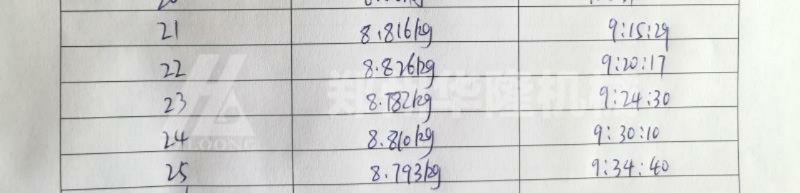 21 8.816kg 9:15:29
22 8.826kg 9:20:17
23 8.782kg 9:24:30
24 8.810kg 9:30:10
25 8.793kg 9:34:40